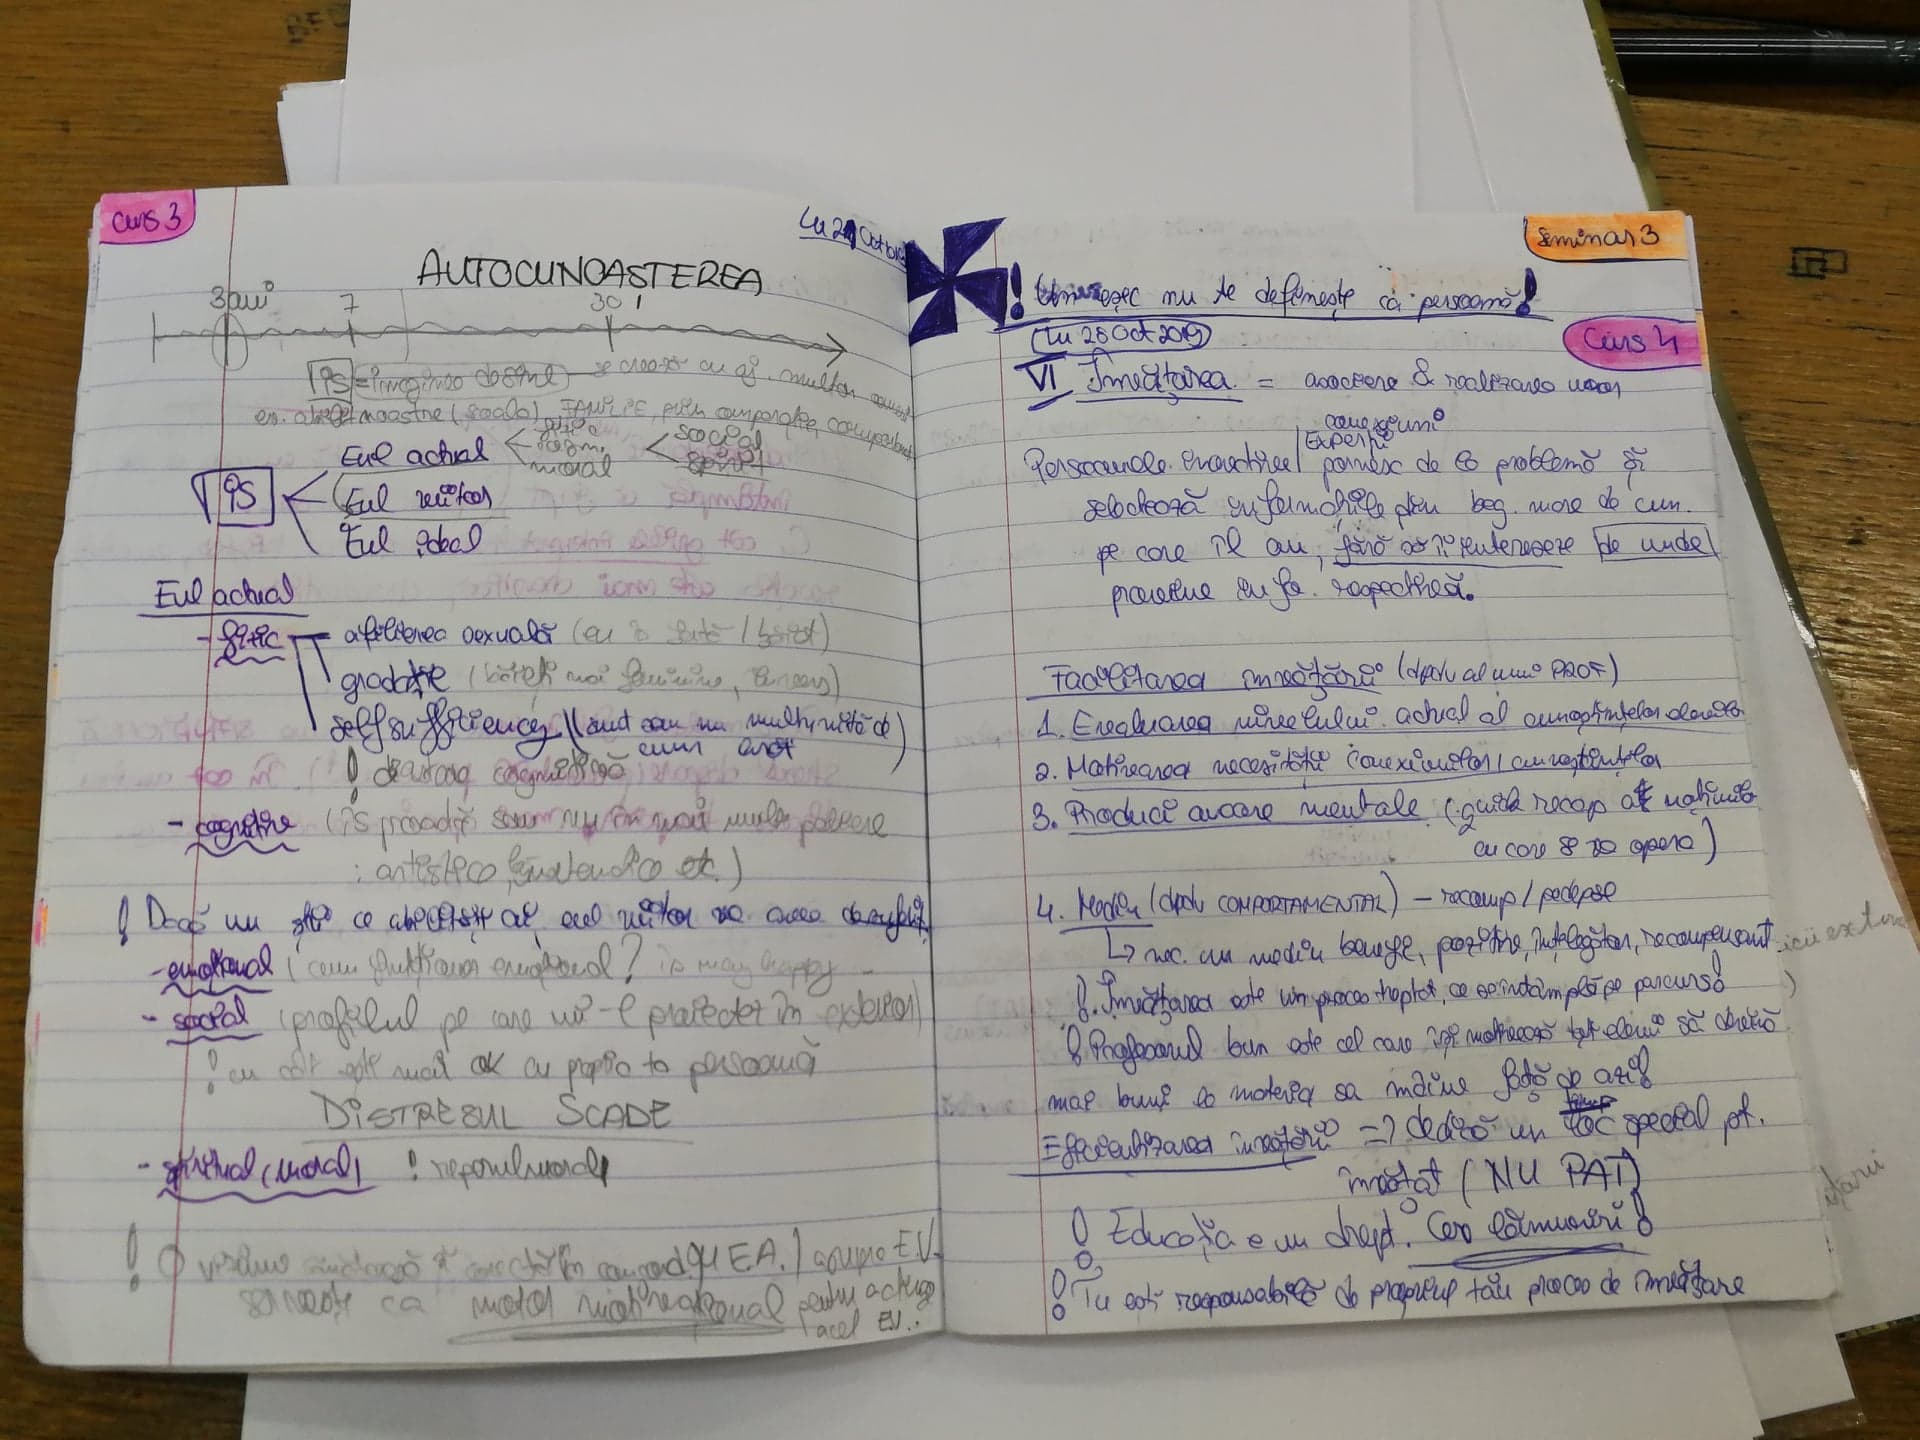 Curs 3
Lu 21 Oct 2019
AUTOCUNOASTEREA
3 ani 7 30
IS = imaginea de sine se crează cu aj. multor oameni
ex. noastre (școala), FAMILIE, prin comparație, comportament
Eul actual fizic cogn. moral social spirit
IS Eul viitor
Eul ideal
Eul actual
- fizic afilierea sexuală (eu is fată / băiat)
gradație (băieți mai feminini,
self sufficiency (sunt sau nu mulțumită de
cum arăt)
! cognitivă
- cognitiv (is preadț sau nu în mai multe
: artistico, etc.)
! Dacă nu știi ce abilități ai, eul viitor va avea de suferit
- emoțional (cum funcționez emoțional? is happy
- social (profilul pe care mi-l proiectez în exterior)
! cu cât ești mai OK cu propria ta persoană
DISTRESUL SCADE
- spiritual (moral) ! reperul moral
! O viziune și corectă în EUL A. / asupra E.V.
servește ca motor motivațional pentru a atinge
acel E.V..
Seminar 3
! Un eșec nu te definește ca persoană!
Lu 28 Oct 2019
Curs 4
VI Învățarea = asociere & realizarea unor
conexiuni
Persoanele inovative / Experții pornesc de la o problemă și
selectează informațiile prin bag. mare de cun.
pe care îl au, fără să îi intereseze de unde
provine info. respectivă.
Facilitarea învățării (dpdv al unui PROF)
1. Evaluarea nivelului actual al cunoștințelor elevilor
2. Motivarea necesității conexiunilor / cunoștințelor
3. Produci ancore mentale (: quick recap al noțiunilor
cu care se va opera)
4. Mediu (dpdv COMPORTAMENTAL) – recomp / pedepse
↳ nec. un mediu benefic, pozitiv, înțelegător, recompensant
! Învățarea este un proces treptat, ce se întâmplă pe parcurs!
! Profesorul bun este cel care își motivează toți elevii să devină
mai buni la materia sa mâine față de azi!
Eficientizarea învățării => dedică un loc special pt.
învățat (NU PAT)
! Educația e un drept. Cer lămuriri!
! Tu ești responsabil de propriul tău proces de învățare